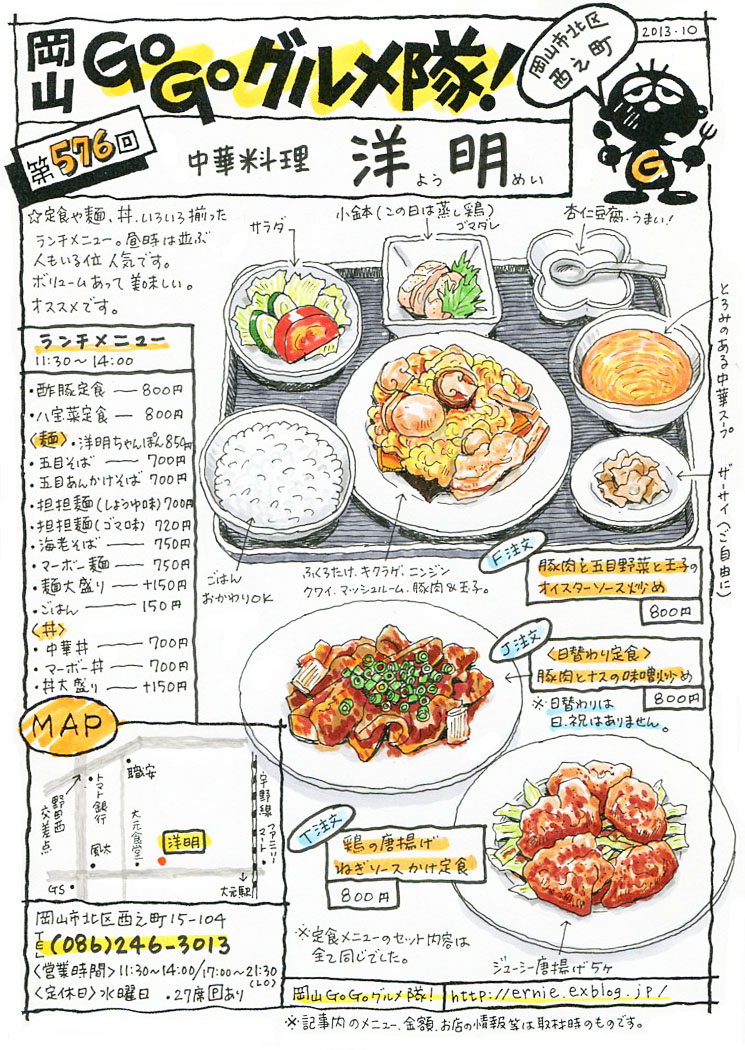 岡山 GoGoグルメ隊!
岡山市北区
西之町
2013・10
第576回
中華料理 洋明
よう めい
G
☆定食や麺、丼、いろいろ揃った
ランチメニュー。昼時は並ぶ
人もいる位 人気です。
ボリュームあって 美味しい。
オススメです。
サラダ
小鉢(この日は蒸し鶏)
ゴマダレ
杏仁豆腐・うまい!
とろみのある中華スープ
ザーサイ(ご自由に)
ごはん
おかわりOK
ふくろたけ、キクラゲ、ニンジン
クワイ、マッシュルーム、豚肉&玉子。
ランチメニュー
11:30〜14:00
・酢豚定食 ― 800円
・八宝菜定食 ― 800円
〈麺〉・洋明ちゃんぽん 850円
・五目そば ― 700円
・五目あんかけそば 700円
・担担麺(しょうゆ味)700円
・担担麺(ゴマ味) 720円
・海老そば ― 750円
・マーボー麺 ― 750円
・麺大盛り ― +150円
・ごはん ― 150円
〈丼〉
・中華丼 ― 700円
・マーボー丼 ― 700円
・丼大盛り ― +150円
F注文
豚肉と五目野菜と玉子の
オイスターソース炒め
800円
J注文
〈日替わり定食〉
豚肉とナスの味噌炒め
800円
※日替わりは
日、祝はありません。
T注文
鶏の唐揚げ
ねぎソースかけ定食
800円
※定食メニューのセット内容は
全て同じでした。
ジューシー唐揚げ5ヶ
MAP
野田西交差点
トマト銀行
職安
大元食堂
風太
洋明
宇野線
ファミリーマート
GS
大元駅
岡山市北区西之町15-104
TEL (086)246-3013
〈営業時間〉11:30〜14:00/17:00〜21:30
(LO)
〈定休日〉水曜日 ・27席 Pあり
岡山GoGoグルメ隊! http://ernie.exblog.jp/
※記事内のメニュー、金額、お店の情報等は取材時のものです。